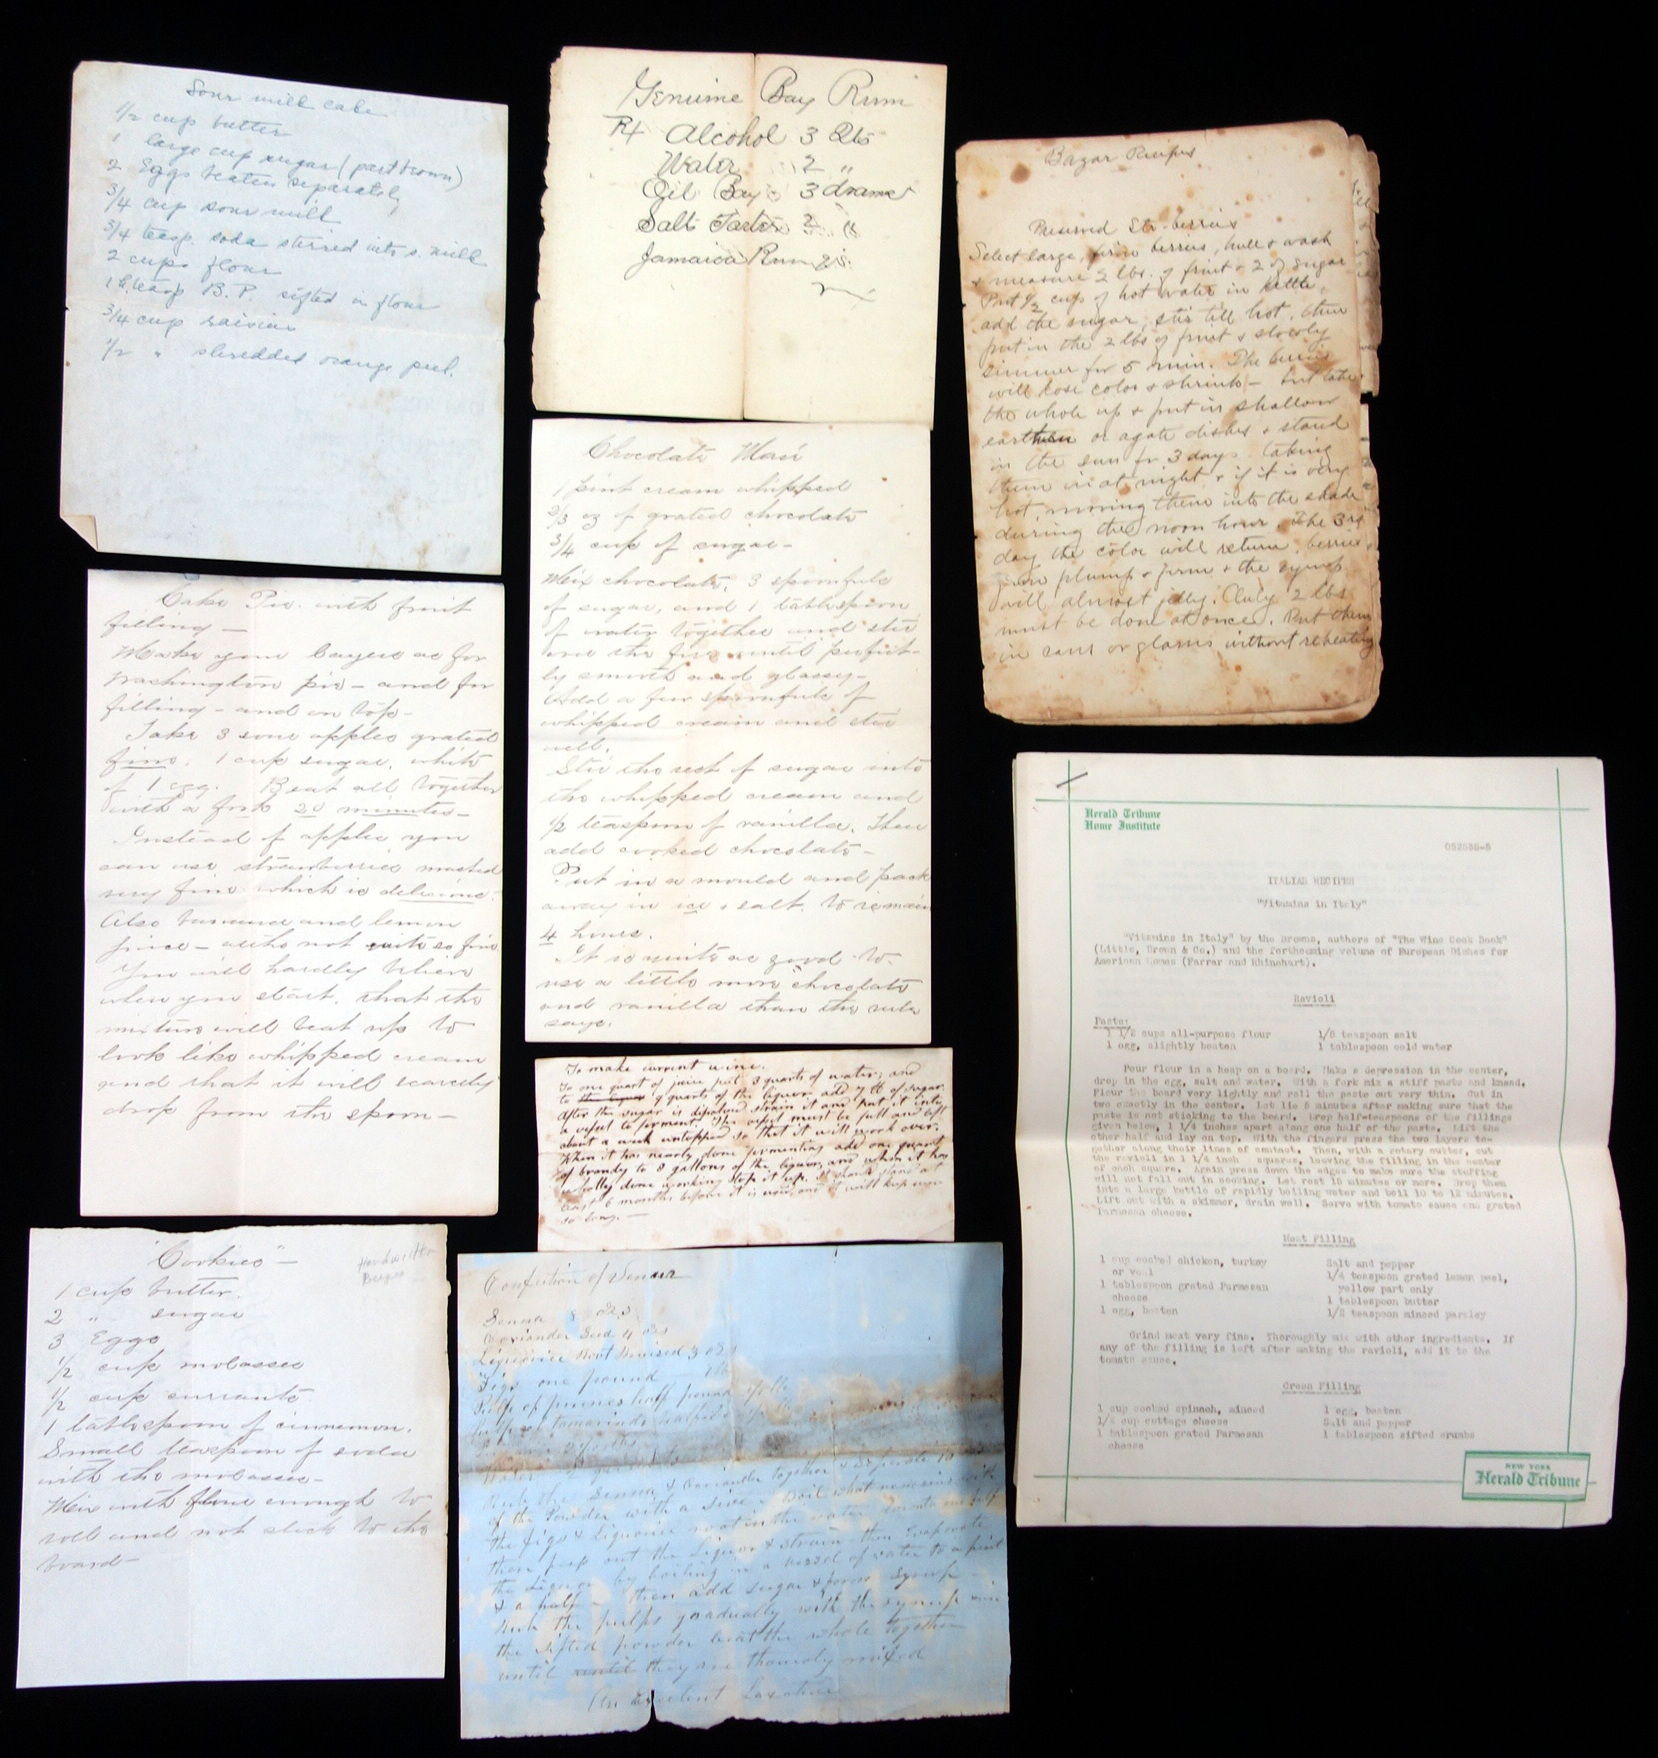 Sour milk cake
1/2 cup butter
1 large cup sugar (part brown)
2 Eggs beaten separately
3/4 cup sour milk
3/4 teasp. soda stirred into s. milk
2 cups flour
1 teasp B.P. sifted in flour
3/4 cup raisins
1/2 " shredded orange peel.
Genuine Bay Rum
Alcohol 3 Qts
Water 2 "
Oil Bay 3 drams
Salts Tartar 2 "
Jamaica Rum qs.
Bazar Recipes
Preserved Str-berries
Select large, firm berries, hull & wash
& measure 2 lbs. of fruit & 2 of sugar
Put 1/2 cup of hot water in kettle,
add the sugar, stir till hot, then
put in the 2 lbs of fruit & slowly
simmer for 5 min. The berries
will lose color & shrink - but take
the whole up & put in shallow
earthen or agate dishes & stand
in the sun for 3 days taking
them in at night & if it is very
hot, moving them into the shade
during the noon hour. The 3rd
day the color will return, berries
grow plump & firm & the syrup
will almost jelly. Only 2 lbs
must be done at once. Put them
in cans or glasses without reheating
Cake Pie. with fruit
filling -
Make your layers as for
Washington pie - and for
filling - and on top -
Take 3 sour apples grated
fine, 1 cup sugar, white
of 1 egg. Beat all together
with a fork 20 minutes -
Instead of apples you
can use strawberries mashed
very fine which is delicious.
Also banana and lemon
juice - altho not quite so fine
You will hardly believe
when you start, that the
mixture will beat up to
look like whipped cream
and that it will scarcely
drop from the spoon -
Chocolate
1 pint cream whipped
2/3 oz of grated chocolate
3/4 cup of sugar -
Mix chocolate, 3 spoonfuls
of sugar, and 1 tablespoon
of water together and stir
over the fire until perfect-
ly smooth and glossy -
Add a few spoonfuls of
whipped cream and stir
well.
Stir the rest of sugar into
the whipped cream and
1/2 teaspoon of vanilla. Then
add cooked chocolate -
Put in a mould and pack
away in ice & salt. to remain
4 hours.
It is quite as good to
use a little more chocolate
and vanilla than the rule
says.
To make currant wine.
To one quart of juice put 3 quarts of water; and
to 4 quarts of the liquor add 4 lb of sugar.
After the sugar is dissolved strain it and put it into
a vessel to ferment. The vessel must be full and left
about a week unstopped so that it will work over.
When it has nearly done fermenting add one quart
of brandy to 8 gallons of the liquor, and when it has
wholly done working stop it up. It should stand at
least 6 months before it is used, and it will keep ever
so long. -
"Cookies" -
Handwritten
1 cup butter.
2 " sugar
3 Eggs
1/2 cup molasses
1/2 cup currants
1 tablespoon of cinnamon.
Small teaspoon of soda
with the molasses -
Mix with flour enough to
roll and not stick to the
board -
Confection of Senna
Senna 8 ozs
Coriander Seed 4 ozs
Liquorice Root Bruised 3 ozs
Figs one pound
Pulp of prunes half pound
Pulp of tamarinds half
Rub the Senna & Coriander together & seperate 10 ozs
of the Powder with a Sive. Boil what remains with
the figs & Liquorice root in the water down to one half
then press out the Liquor & strain then Evaporate
the Liquor by boiling in a vessel of water to a pint
& a half - then add sugar & form Syrup
Rub the pulps gradually with the syrup
the sifted powder beat the whole together
until they are mixed
An Excelent Laxative
Herald Tribune
Home Institute
052538-5
ITALIAN RECIPES
"Vitamins in Italy"
"Vitamins in Italy" by the Browns, authors of "The Wine Cook Book"
(Little, Brown & Co.) and the forthcoming volume of European Dishes for
American Homes (Farrar and Rhinehart).
Ravioli
Paste:
1 1/2 cups all-purpose flour 1/8 teaspoon salt
1 egg, slightly beaten 1 tablespoon cold water
Pour flour in a heap on a board. Make a depression in the center,
drop in the egg, salt and water. With a fork mix a stiff paste and knead.
Flour the board very lightly and roll the paste out very thin. Cut in
two exactly in the center. Let lie 5 minutes after making sure that the
paste is not sticking to the board. Drop half-teaspoons of the fillings
given below, 1 1/4 inches apart along one half of the paste. Lift the
other half and lay on top. With the fingers press the two layers to-
gether along their lines of contact. Then, with a rotary cutter, cut
the ravioli in 1 1/4 inch squares, leaving the filling in the center
of each square. Again press down the edges to make sure the stuffing
will not fall out in cooking. Let rest 15 minutes or more. Drop them
into a large kettle of rapidly boiling water and boil 10 to 12 minutes.
Lift out with a skimmer, drain well. Serve with tomato sauce and grated
Parmesan cheese.
Meat Filling
1 cup cooked chicken, turkey Salt and pepper
or veal 1/4 teaspoon grated lemon peel,
1 tablespoon grated Parmesan yellow part only
cheese 1 tablespoon butter
1 egg, beaten 1/2 teaspoon minced parsley
Grind meat very fine. Thoroughly mix with other ingredients. If
any of the filling is left after making the ravioli, add it to the
tomato sauce.
Green Filling
1 cup cooked spinach, minced 1 egg, beaten
1/2 cup cottage cheese Salt and pepper
1 tablespoon grated Parmesan 1 tablespoon sifted crumbs
cheese
NEW YORK
Herald Tribune